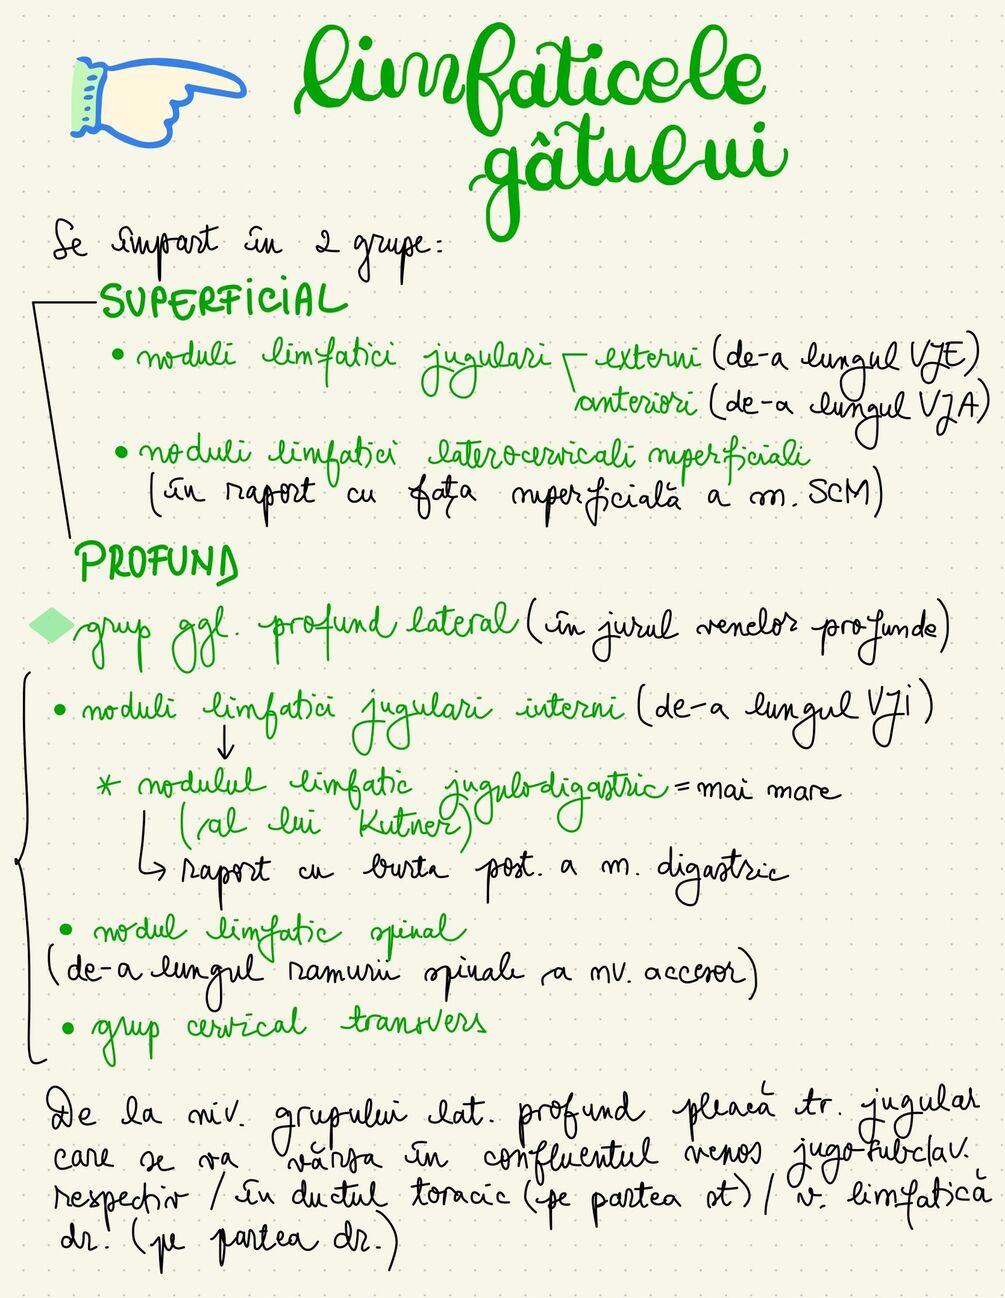 limfaticele
gâtului
Se împart în 2 grupe:
SUPERFICIAL
• noduli limfatici jugulari externi (de-a lungul VJE)
anteriori (de-a lungul VJA)
• noduli limfatici laterocervicali superficiali
(în raport cu fața superficială a m. SCM)
PROFUND
grup ggl. profund lateral (în jurul venelor profunde)
• noduli limfatici jugulari interni (de-a lungul VJI)
↓
* nodulul limfatic jugulodigastric = mai mare
(al lui Kutner)
↳ raport cu burta post. a m. digastric
• nodul limfatic spinal
(de-a lungul ramurii spinale a nv. accesor)
• grup cervical transvers
De la niv. grupului lat. profund pleacă tr. jugular
care se va vărsa în confluentul venos jugo-subclav.
respectiv / în ductul toracic (pe partea st) / v. limfatică
dr. (pe partea dr.)